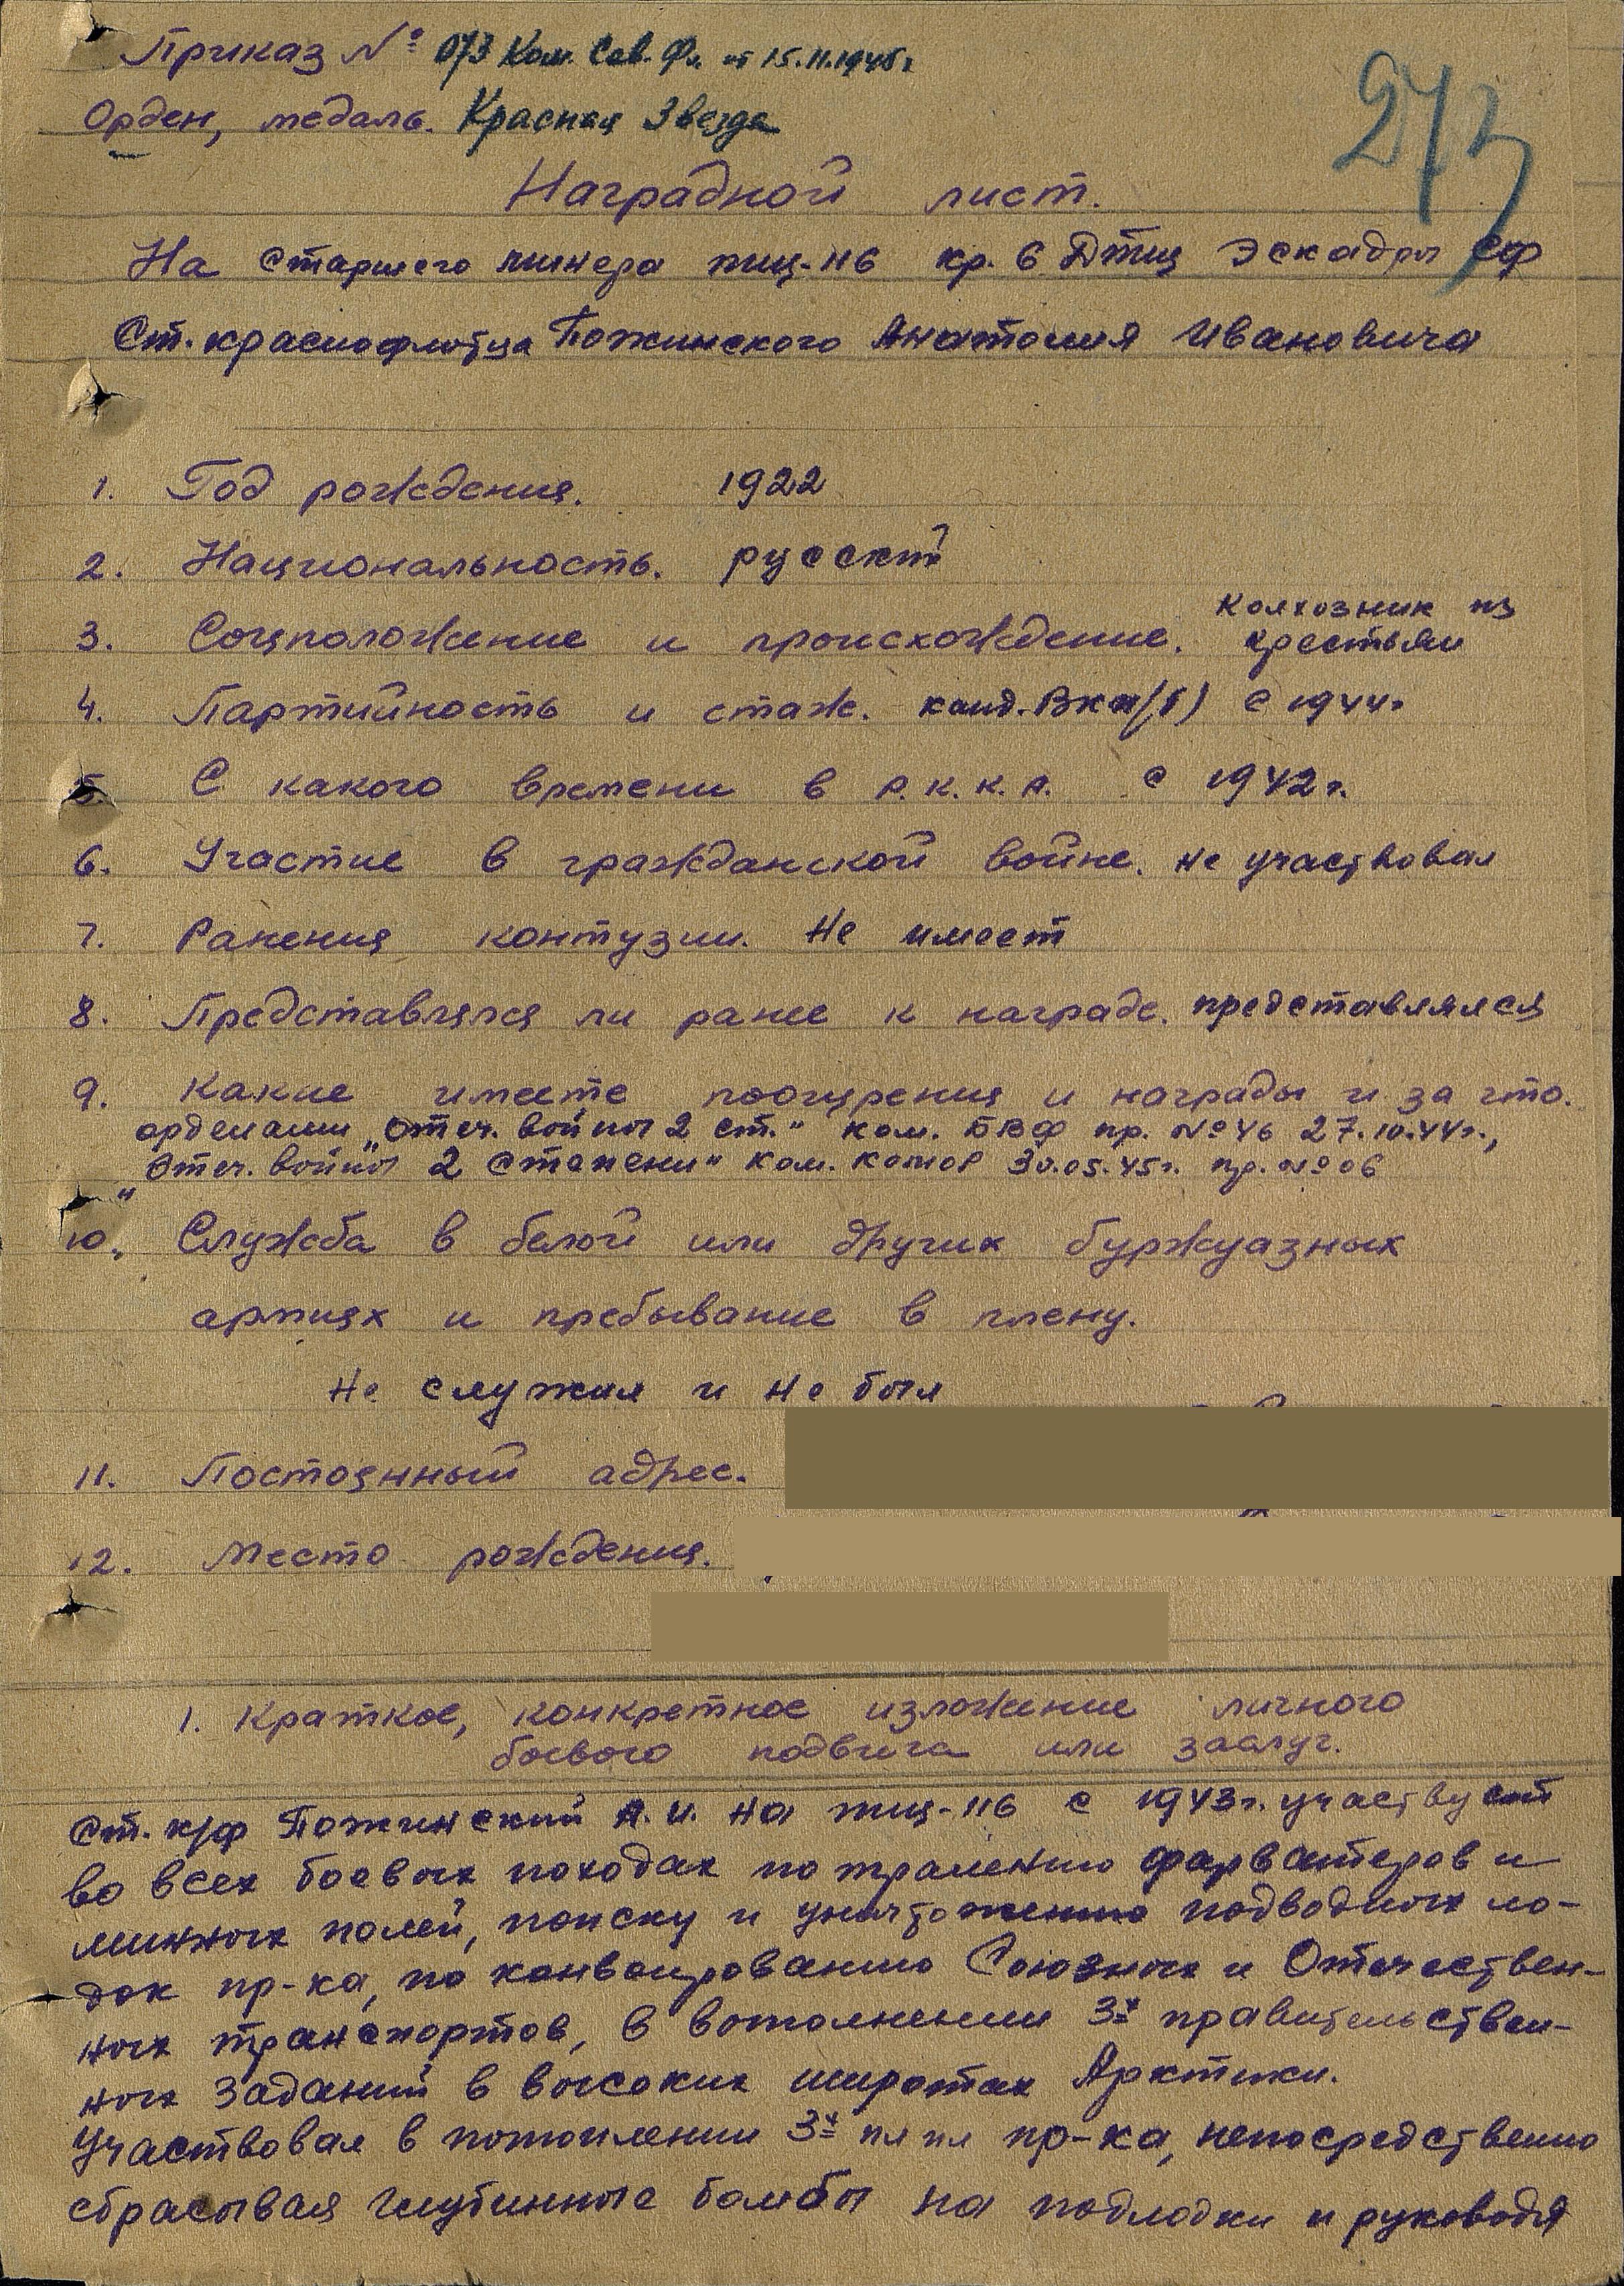 Приказ № 073 Ком. Сев. Фл. от 15.11.1945г
273
Орден, медаль. Красная Звезда
Наградной лист.
На старшего минера тщ-116 кр. 6 Дтщ Эскадры СФ
Ст. краснофлотца Пожинского Анатолия Ивановича
1. Год рождения. 1922
2. Национальность. русский
3. Соцположение и происхождение. колхозник из
крестьян
4. Партийность и стаж. канд. Вкп/б) с 1944г
5. С какого времени в Р.К.К.А. с 1942г.
6. Участие в гражданской войне. не участвовал
7. Ранения контузии. Не имеет
8. Представлялся ли ранее к награде. представлялся
9. Какие имеете поощрения и награды и за что.
орденами „Отеч. войны 2 ст." ком. БВФ пр. №46 27.10.44г.,
„Отеч. войны 2 степени" ком. 30.05.45г. пр. №06
10. Служба в белой или других буржуазных
армиях и пребывание в плену.
Не служил и не был
11. Постоянный адрес.
12. Место рождения.
1. Краткое, конкретное изложение личного
боевого подвига или заслуг.
Ст. к/ф Пожинский А. И. на тщ-116 с 1943г. участвует
во всех боевых походах по тралению фарватеров и
минных полей, поиску и уничтожению подводных ло-
док пр-ка, по конвоированию Союзных и Отечествен-
ных транспортов, в выполнении 3х правительствен-
ных заданий в высоких широтах Арктики.
Участвовал в потоплении 3х пл пл пр-ка, непосредственно
сбрасывая глубинные бомбы на подлодки и руководя